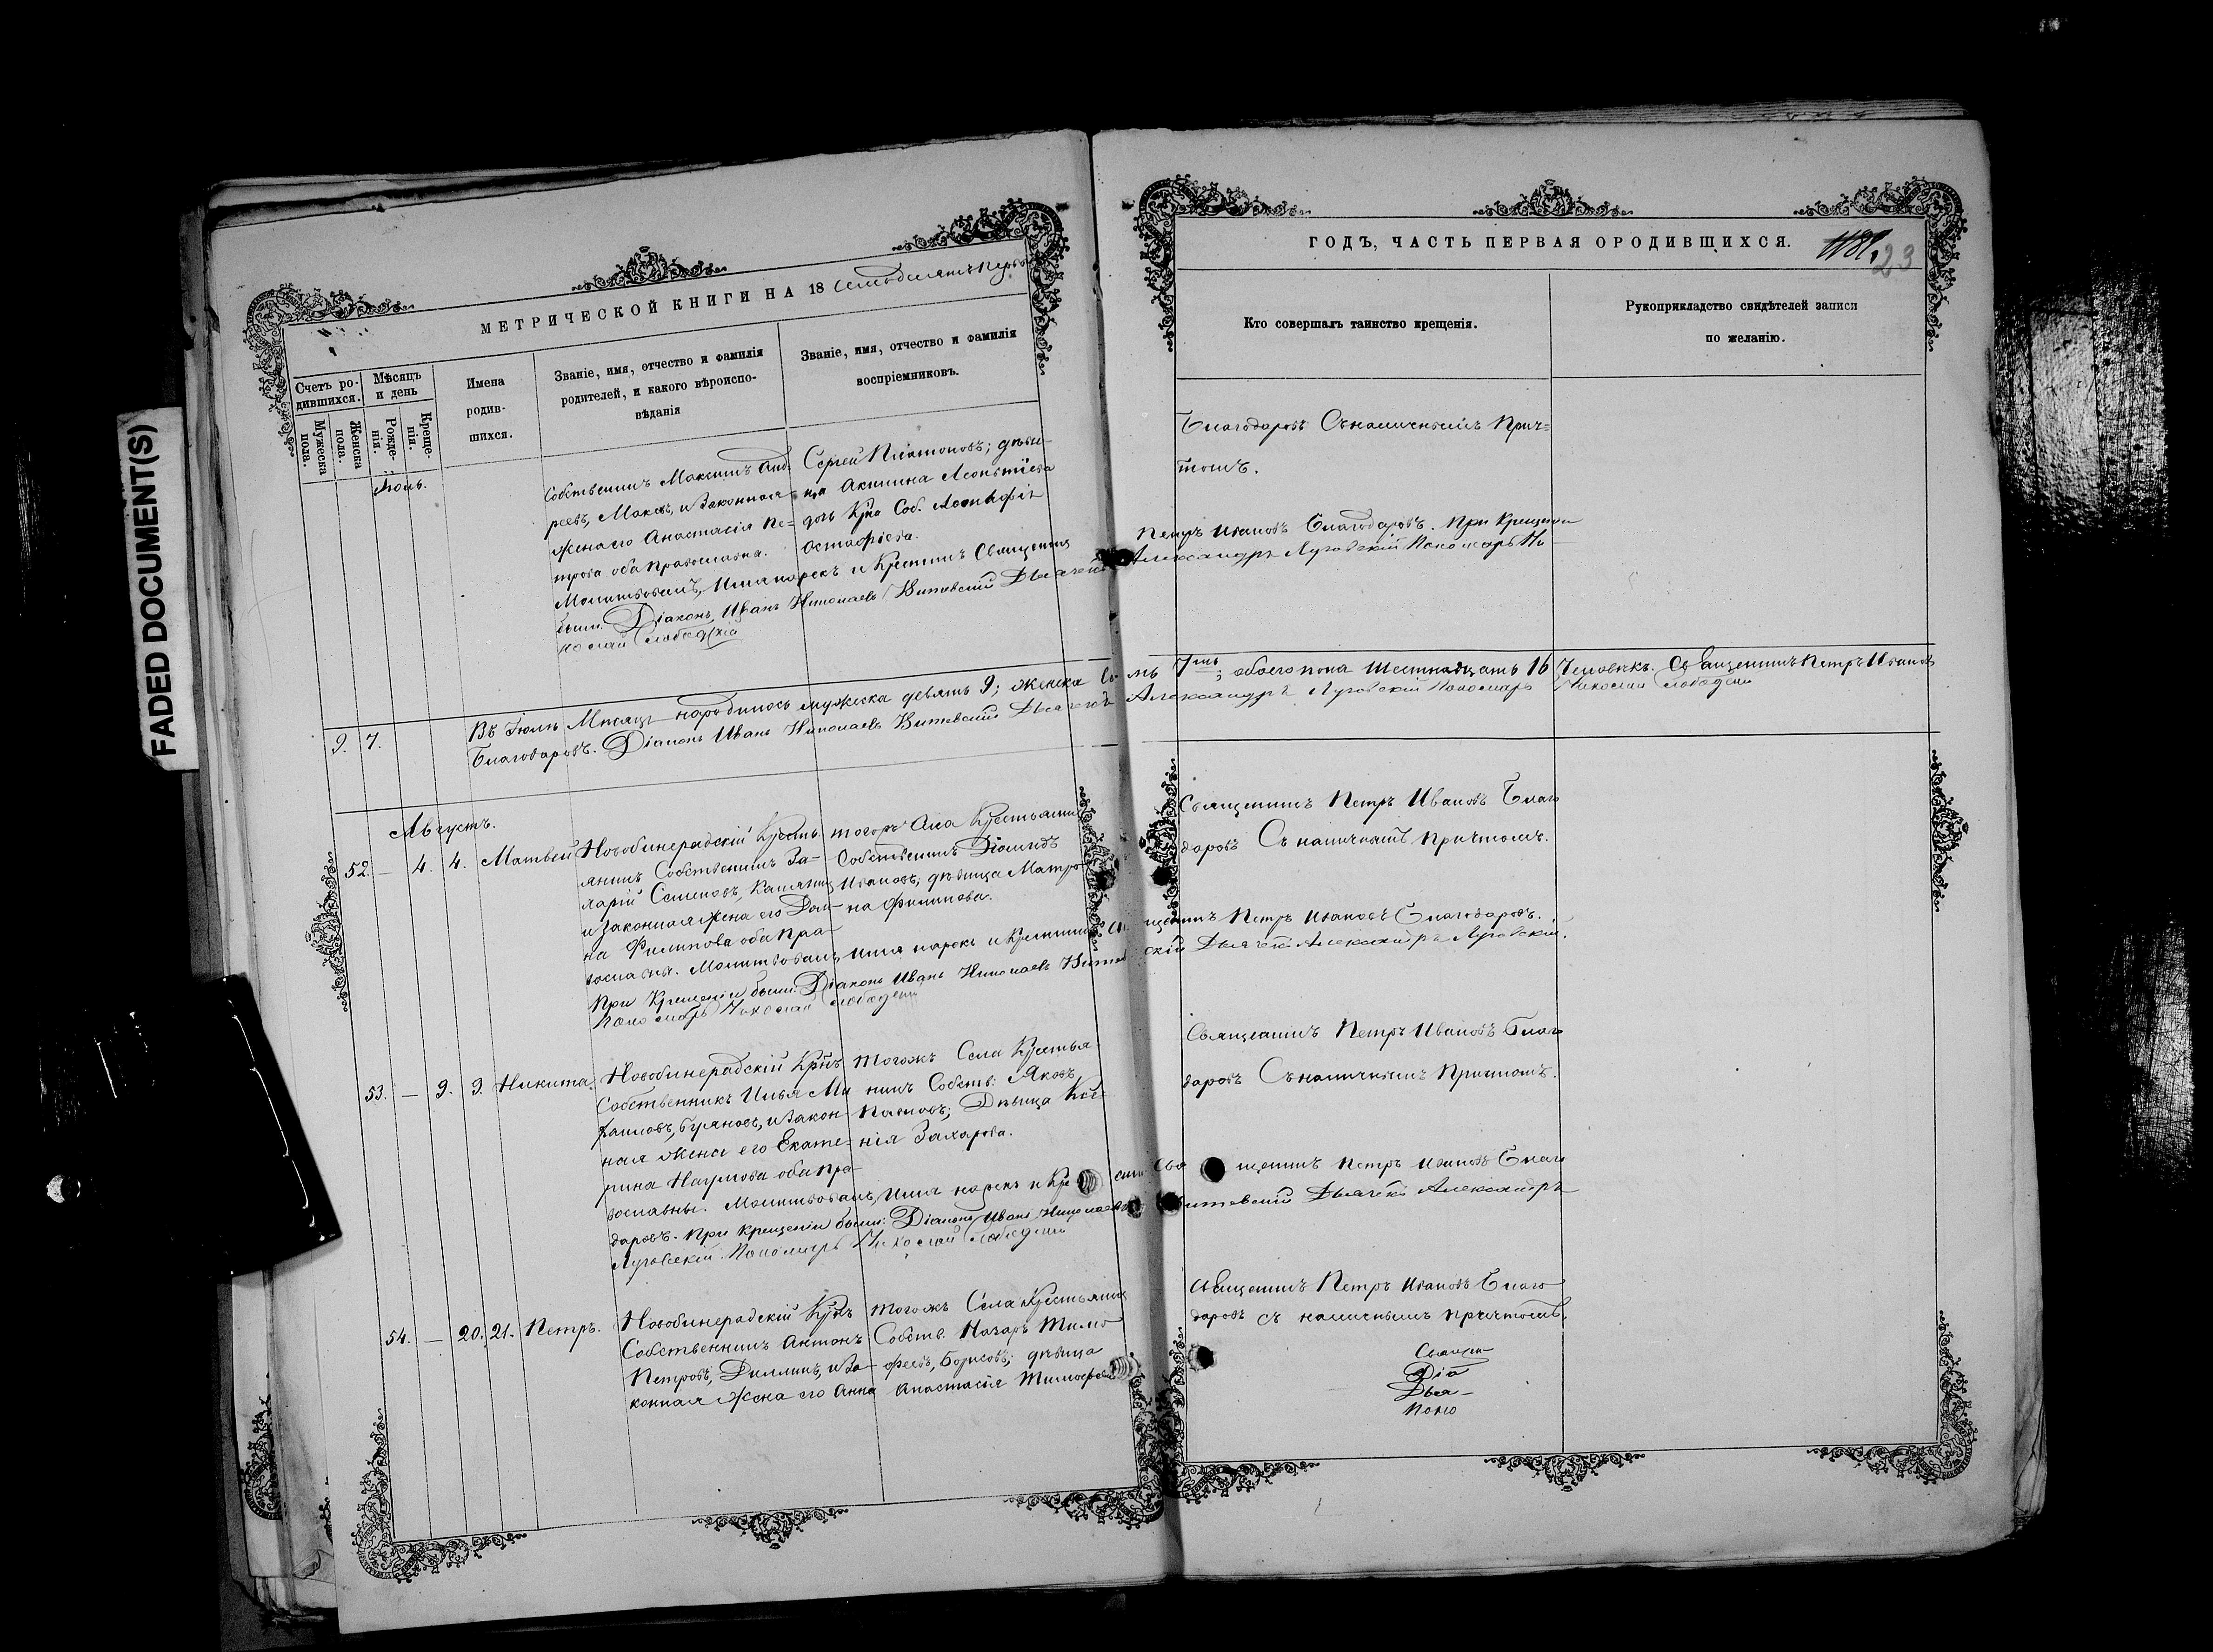 FADED DOCUMENT(S)
МЕТРИЧЕСКОЙ КНИГИ НА 18
Счетъ ро-
дившихся.
Мужеска
пола.
Женска
пола.
Мѣсяцъ
и день
Рожде-
нія.
Креще-
нія.
Имена
родив-
шихся.
Званіе, имя, отчество и фамилія
родителей, и какого вѣроиспо-
вѣданія
Званіе, имя, отчество и фамилія
воспріемниковъ.
Собственникъ Максимъ Анд-
реевъ, и Законная
жена его Анастасія Пе-
трова оба православна.
Сергей Платоновъ; дѣви-
ца Акилина Леонтіева
дочь Соб.
Остафіева.
Молитвовалъ, имя нарекъ и Крестилъ Священникъ
были: Діаконъ Иванъ Николаевъ Витевскій Дьячекъ
9. 7.
Въ Іюлѣ Мѣсяцѣ народилось мужеска девять 9; женска се
Благодаровъ. Діаконъ Иванъ Николаевъ Витевскій Дьячекъ
Августъ.
52. — 4. 4. Матвей
Новобинерадскій Крестья-
янинъ Собственникъ За-
харій Семеновъ,
и Законная жена его Дом-
на Филипова оба пра-
вославны. Молитвовалъ, имя нарекъ и Крестилъ Св
При Крещеніи были: Діаконъ Иванъ Николаевъ Витев
Пономарь Николай
тогожъ Села Крестьянинъ
Собственникъ Діомидъ
Ивановъ; дѣвица Матро-
на Филипова.
53. — 9. 9. Никита.
Новобинерадскій Крнъ
Собственникъ Илья Ми
хаиловъ, Буяновъ, и Закон-
ная жена его Екате-
рина Наумова оба пра-
вославны. Молитвовалъ, имя нарекъ и Кре
даровъ. При крещеніи были: Діаконъ Иванъ Николаевъ
Луговскій Пономарь Николай
тогожъ Села Крестья
нинъ Собств: Яковъ
Павловъ; Дѣвица Ксе-
нія Захарова.
54. — 20. 21. Петръ.
Новобинерадскій Крнъ
Собственникъ Антонъ
Петровъ, и За-
конная Жена его Анна
тогожъ Села Крестьянинъ
Собств. Назаръ Тимо
феевъ, Борисовъ; дѣвица
Анастасія Тимофеева
ГОДЪ, ЧАСТЬ ПЕРВАЯ ОРОДИВШИХСЯ.
23
Кто совершалъ таинство крещенія.
Рукоприкладство свидѣтелей записи
по желанію.
Благодаровъ Съ наличнымъ Прич-
томъ.
Петръ Ивановъ Благодаровъ. При Крещеніи
Александръ Луговскій Пономарь Ни
мь 7мь; обоего пола шестнадцать 16 Человѣкъ. Священникъ Петръ Ивановъ
Александръ Луговскій Пономарь Николай
Священникъ Петръ Ивановъ Благо
даровъ Съ наличнымъ Причтомъ.
щенникъ Петръ Ивановъ Благодаровъ.
скій Дьячекъ Александръ Луговскій.
Священникъ Петръ Ивановъ Благо
даровъ Съ наличнымъ Причтомъ.
щенникъ Петръ Ивановъ Благо
Витевскій Дьячекъ Александръ
Священникъ Петръ Ивановъ Благо
даровъ съ наличнымъ причтомъ.
Священ-
Діа
Дьяч-
Поно